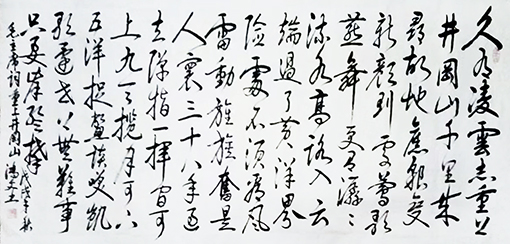 久有凌雲志重上
井岡山千里来
尋故地舊貌變
新顔到處鶯歌
燕舞更有潺〻
流水高路入云
端過了黄洋界
險處不須看風
雷動旌旗奮是
人寰三十八年過
去彈指一揮間可
上九天攬月可下
五洋捉鱉談笑凱
歌還世上無難事
只要肯登攀 戊戌年秋
毛主席詞重上井岡山